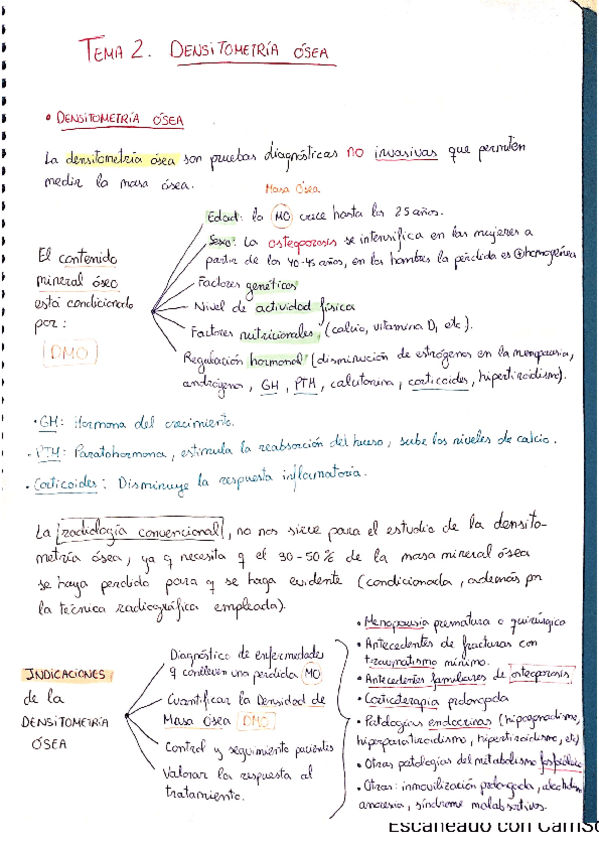 TEMA 2. DENSITOMETRÍA ÓSEA
• DENSITOMETRÍA ÓSEA
La densitometría ósea son pruebas diagnósticas no invasivas que permiten
medir la masa ósea.
Masa Ósea
Edad: la MO crece hasta los 25 años.
Sexo: La osteoporosis se intensifica en las mujeres a
partir de los 40-45 años, en los hombres la pérdida es ⊕ homogénea
Factores genéticos
Nivel de actividad física
Factores nutricionales, (calcio, vitamina D, etc).
Regulación hormonal (disminución de estrógenos en la menopausia,
andrógeno, GH, PTH, calcitonina, corticoides, hipertiroidismo).
El contenido
mineral óseo
está condicionado
por:
DMO
• GH: Hormona del crecimiento.
• PTH: Paratohormona, estimula la reabsorción del hueso, sube los niveles de calcio.
• Corticoides: Disminuye la respuesta inflamatoria.
La radiología convencional, no nos sirve para el estudio de la densito-
metría ósea, ya q necesita q el 30-50% de la masa mineral ósea
se haya perdido para q se haga evidente (condicionada, además por
la técnica radiográfica empleada).
INDICACIONES
de la
DENSITOMETRÍA
ÓSEA
Diagnóstico de enfermedades
q conlleven una perdida MO
Cuantificar la Densidad de
Masa Ósea DMO
Control y seguimiento pacientes
Valorar la respuesta al
tratamiento.
• Menopausia prematura o quirúrgica
• Antecedentes de fracturas con
traumatismo mínimo.
• Antecedentes familiares de osteoporosis
• Corticoterapia prolongada
• Patologías endocrinas (hipogonadismo,
hiperparatiroidismo, hipertiroidismo, etc)
• Otras patologías del metabolismo fosfocálcico
• Otras: inmovilización prolongada,
anorexia, síndrome malabsortivos.
Escaneado con CamSc